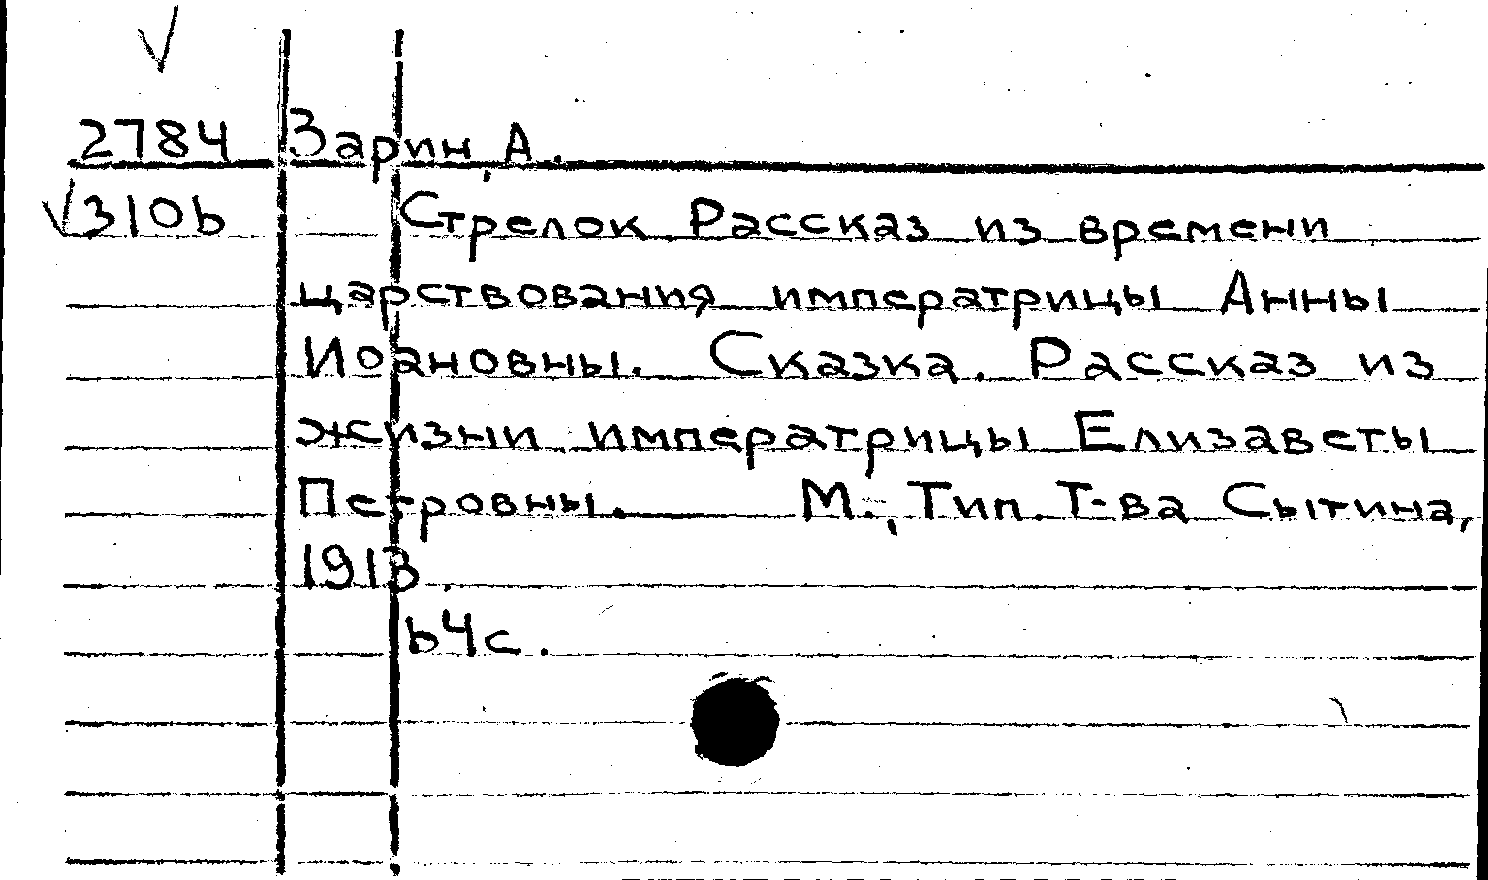 2784 Зарин, А.
310b Стрелок Рассказ из времени
царствования императрицы Анны
Иоановны. Сказка. Рассказ из
жизни императрицы Елизаветы
Петровны. М., Тип. Т-ва Сытина,
1913.
64с.